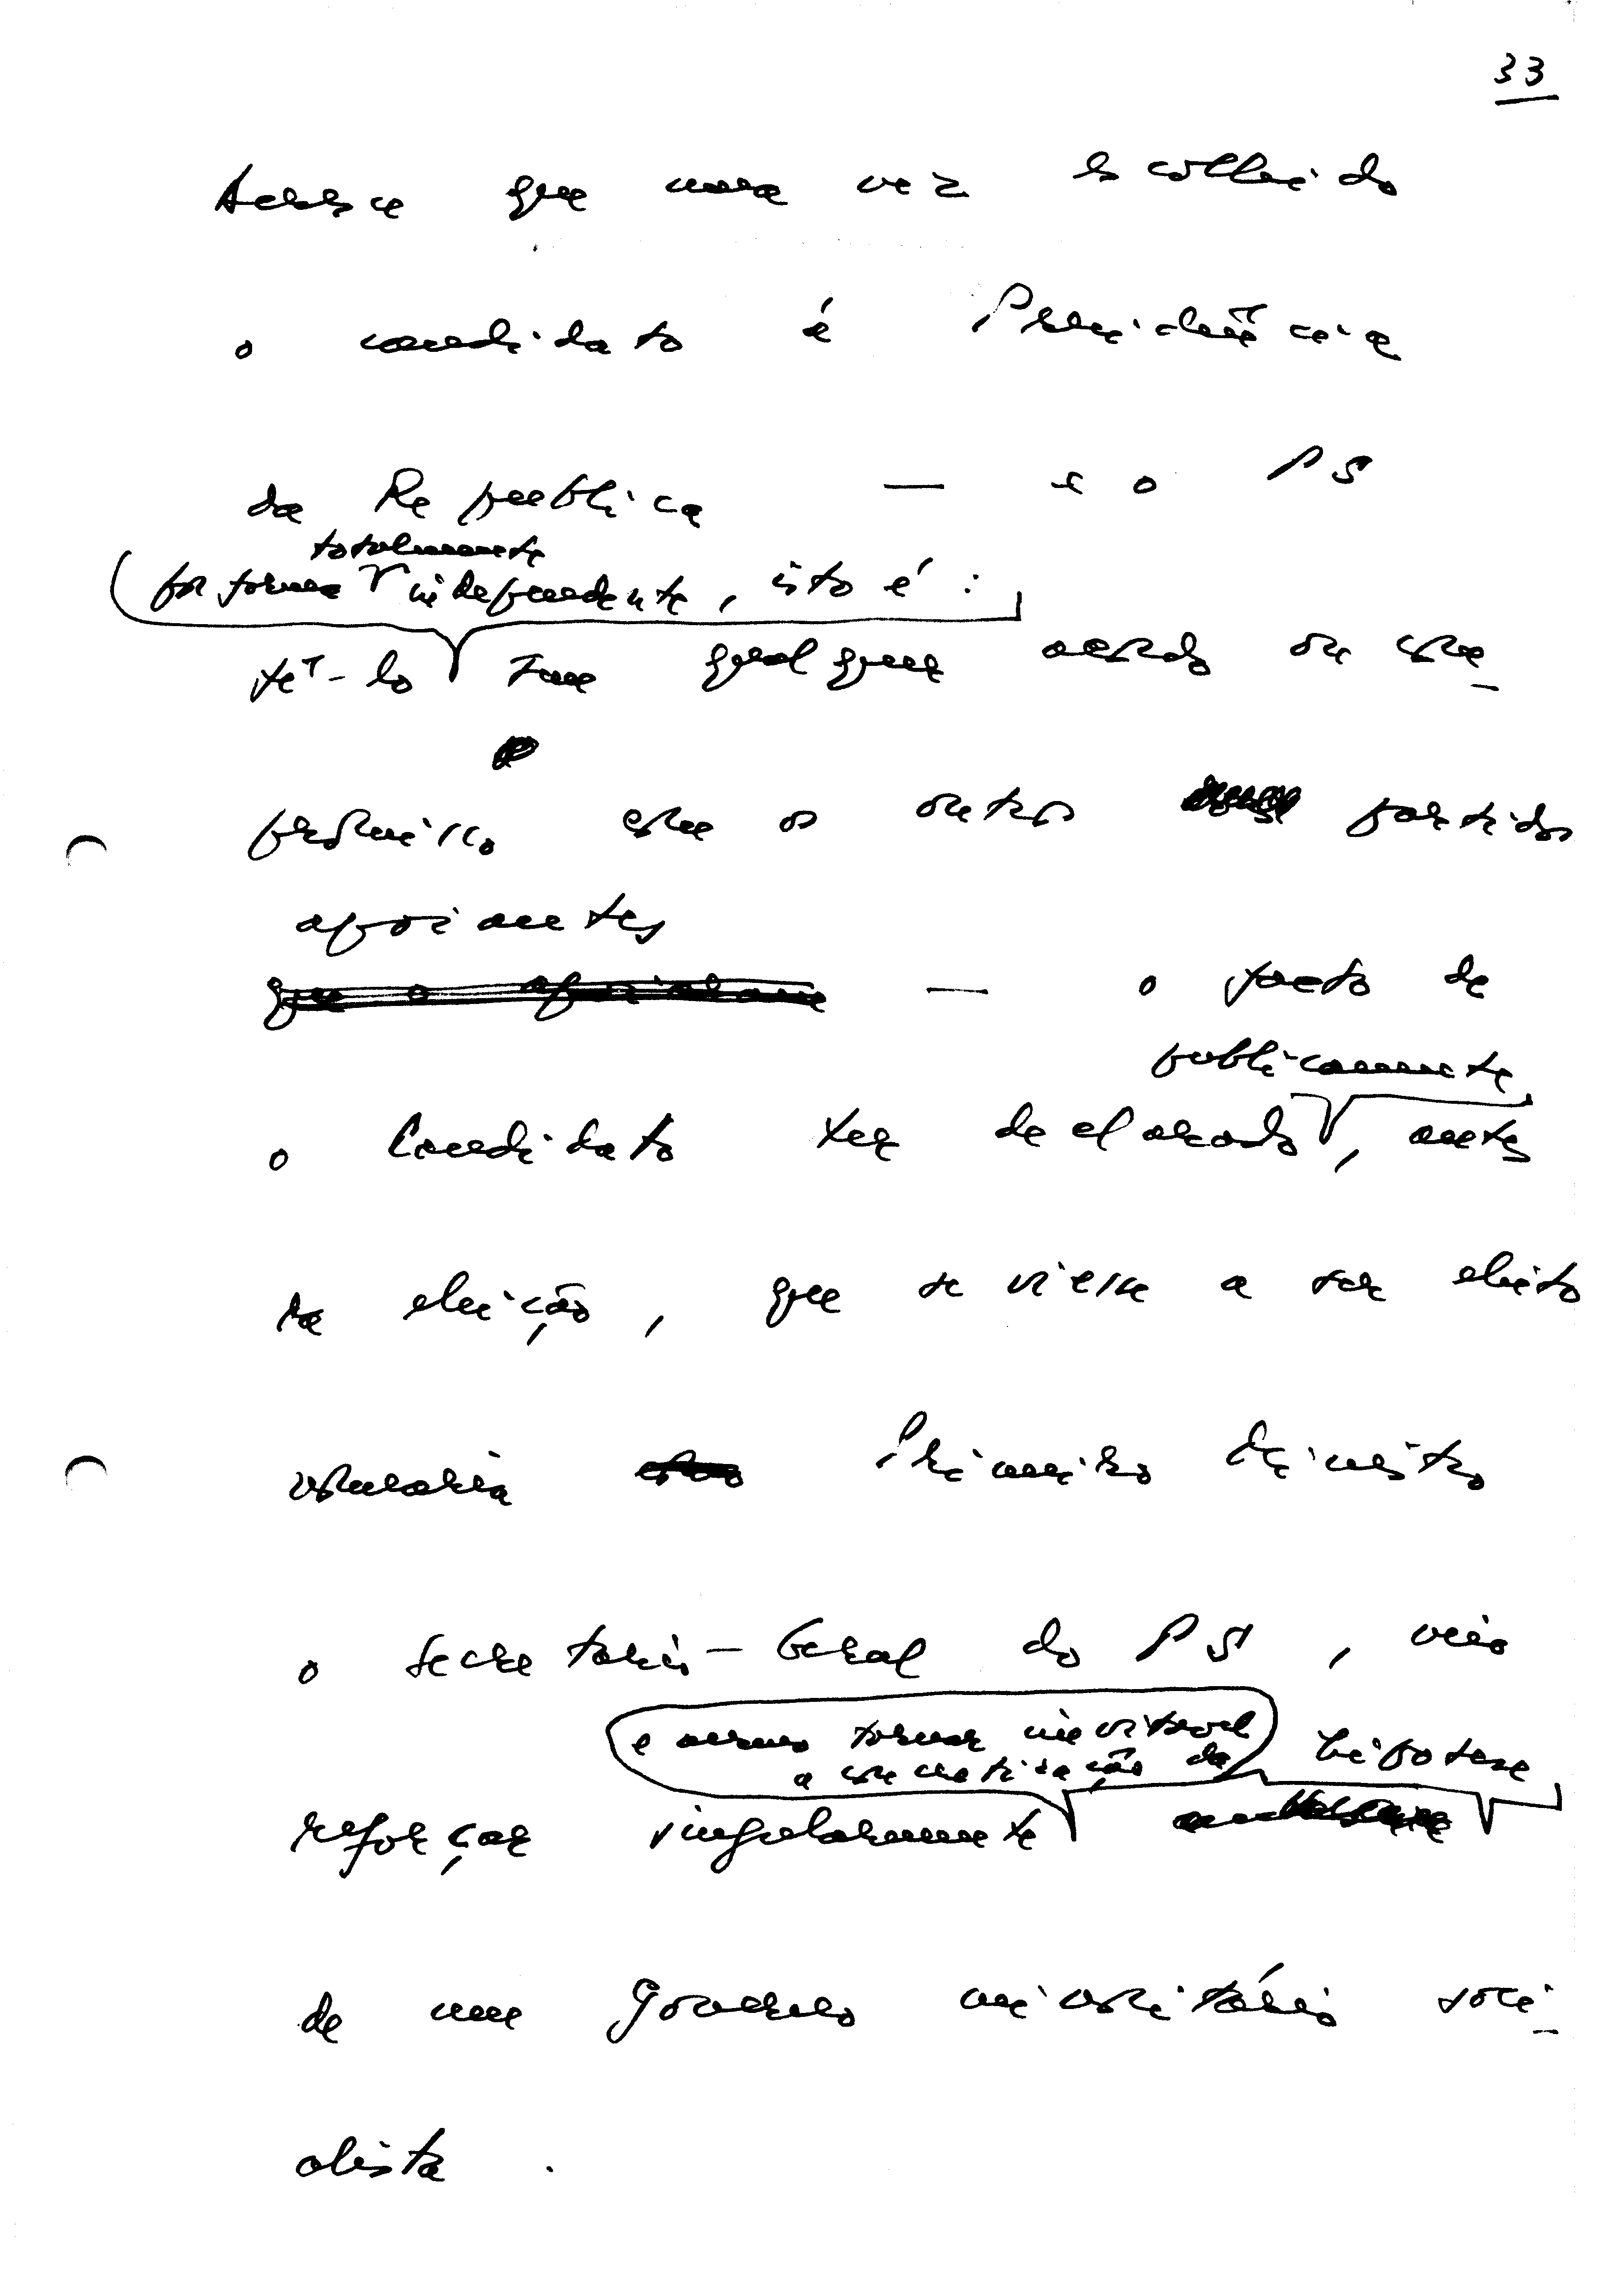 33
Acresce que uma vez escolhido
o candidato à Presidência
da República — e o PS
totalmente
por forma independente, isto é:
fê-lo sem qualquer acordo ou com
promisso com os outros partidos
apoiantes
que o apoiavam — o facto de
publicamente
o Candidato ter declarado, antes
da eleição, que se viesse a ser eleito
nomearia Primeiro Ministro
o Secretário-Geral do PS, veio
e mesmo tornar inevitável
a concretização da hipótese
reforçar singularmente
de um Governo minoritário soci
alista.